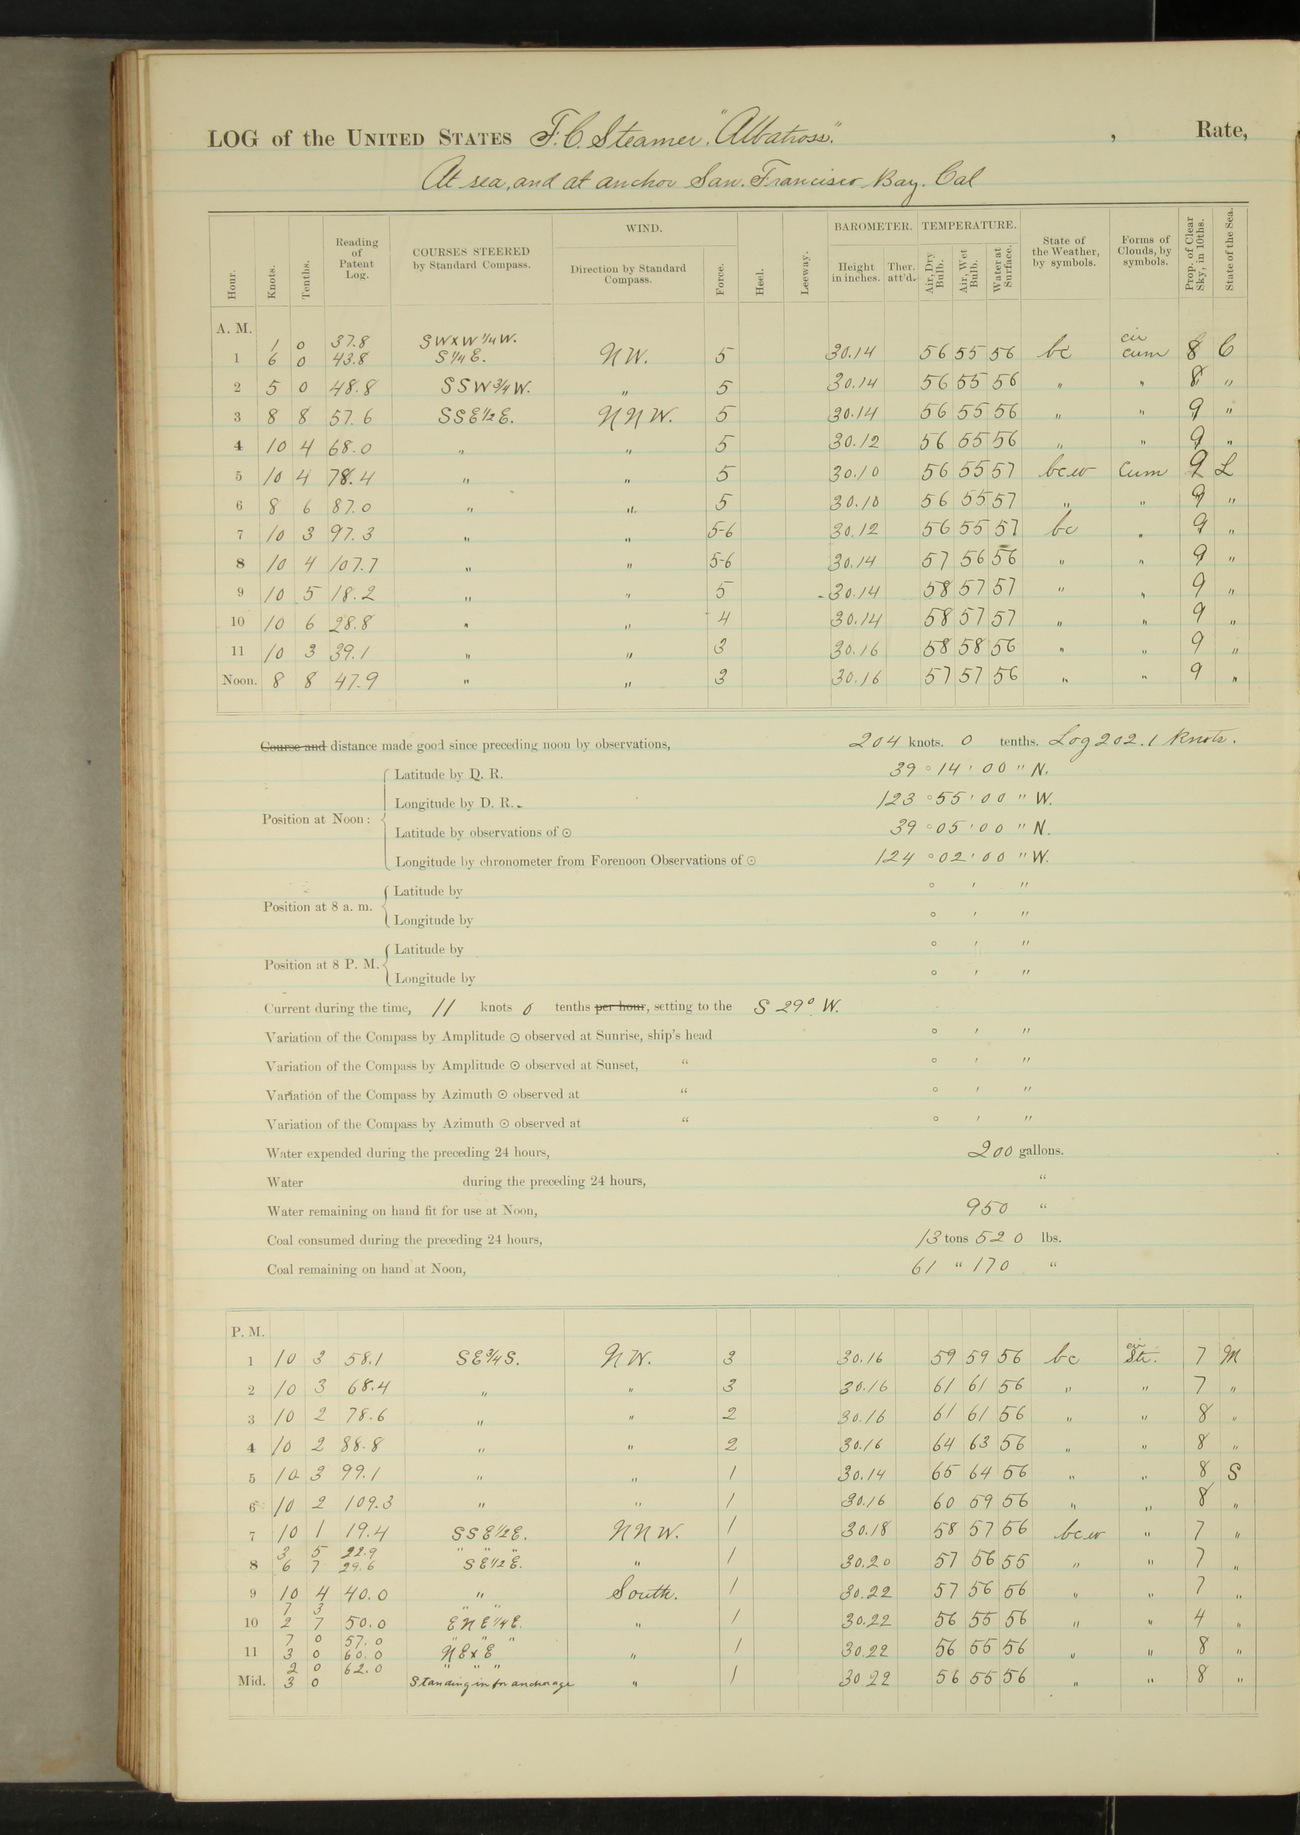 LOG of the UNITED STATES F.C. Steamer "Albatross". , Rate,
At sea, and at anchor San. Francisco Bay. Cal
Hour. Knots. Tenths. Reading of Patent Log. COURSES STEERED by Standard Compass. WIND. Direction by Standard Compass. Force. Heel. Leeway. BAROMETER. Height in inches. Ther. att'd. TEMPERATURE. Air, Dry Bulb. Air, Wet Bulb. Water at Surface. State of the Weather, by symbols. Forms of Clouds, by symbols. Prop. of Clear Sky, in 10ths. State of the Sea.
A. M.
1 0 37.8 SWxW 1/4 W. cir
1 6 0 43.8 S 1/4 E. NW. 5 30.14 56 55 56 bc cum 8 C
2 5 0 48.8 SSW 3/4 W. " 5 30.14 56 55 56 " " 8 "
3 8 8 57.6 SSE 1/2 E. NNW. 5 30.14 56 55 56 " " 9 "
4 10 4 68.0 " " 5 30.12 56 55 56 " " 9 "
5 10 4 78.4 " " 5 30.10 56 55 57 bcw Cum 9 L
6 8 6 87.0 " " 5 30.10 56 55 57 " " 9 "
7 10 3 97.3 " " 5-6 30.12 56 55 57 bc " 9 "
8 10 4 107.7 " " 5-6 30.14 57 56 56 " " 9 "
9 10 5 18.2 " " 5 30.14 58 57 57 " " 9 "
10 10 6 28.8 " " 4 30.14 58 57 57 " " 9 "
11 10 3 39.1 " " 3 30.16 58 58 56 " " 9 "
Noon. 8 8 47.9 " " 3 30.16 57 57 56 " " 9 "
Course and distance made good since preceding noon by observations, 204 knots. 0 tenths. Log 202.1 Knots.
Latitude by D. R. 39 ° 14 ' 00 " N.
Longitude by D. R. 123 ° 55 ' 00 " W.
Position at Noon:
Latitude by observations of ☉ 39 ° 05 ' 00 " N.
Longitude by chronometer from Forenoon Observations of ☉ 124 ° 02 ' 00 " W.
Latitude by ° ' "
Position at 8 a. m.
Longitude by ° ' "
Latitude by ° ' "
Position at 8 P. M.
Longitude by ° ' "
Current during the time, 11 knots 0 tenths per hour, setting to the S 29° W.
Variation of the Compass by Amplitude ☉ observed at Sunrise, ship's head ° ' "
Variation of the Compass by Amplitude ☉ observed at Sunset, " ° ' "
Variation of the Compass by Azimuth ☉ observed at " ° ' "
Variation of the Compass by Azimuth ☉ observed at " ° ' "
Water expended during the preceding 24 hours, 200 gallons.
Water during the preceding 24 hours, "
Water remaining on hand fit for use at Noon, 950 "
Coal consumed during the preceding 24 hours, 13 tons 520 lbs.
Coal remaining on hand at Noon, 61 " 170 "
P. M.
1 10 3 58.1 SE 3/4 S. NW. 3 30.16 59 59 56 bc cir Str. 7 M
2 10 3 68.4 " " 3 30.16 61 61 56 " " 7 "
3 10 2 78.6 " " 2 30.16 61 61 56 " " 8 "
4 10 2 88.8 " " 2 30.16 64 63 56 " " 8 "
5 10 3 99.1 " " 1 30.14 65 64 56 " " 8 S
6 10 2 109.3 " " 1 30.16 60 59 56 " " 8 "
7 10 1 19.4 SSE 1/2 E. NNW. 1 30.18 58 57 56 bcw " 7 "
3 5 22.9 " " "
8 6 7 29.6 SE 1/2 E. " 1 30.20 57 56 55 " " 7 "
9 10 4 40.0 " South. 1 30.22 57 56 56 " " 7 "
7 3 " "
10 2 7 50.0 ENE 1/4 E. " 1 30.22 56 55 56 " " 4 "
7 0 57.0 " " "
11 3 0 60.0 NExE " 1 30.22 56 55 56 " " 8 "
2 0 62.0 " " "
Mid. 3 0 Standing in for anchorage " 1 30 22 56 55 56 " " 8 "